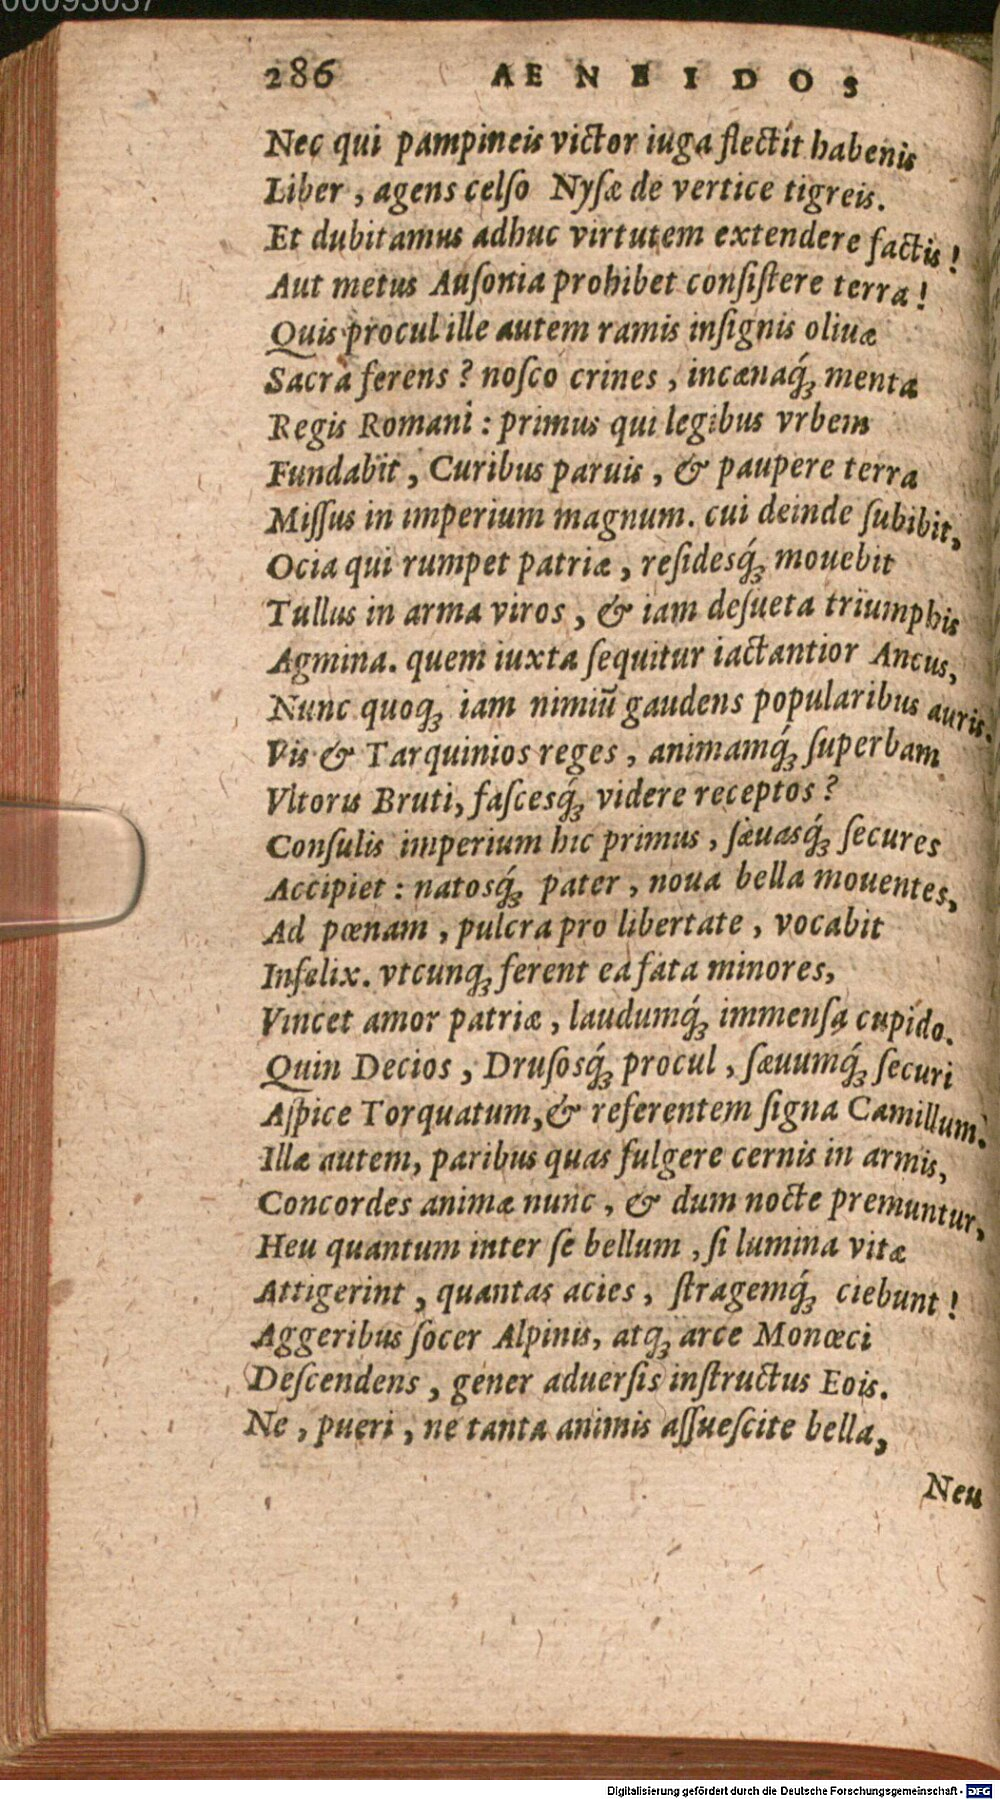 00093037
286 AENEIDOS
Nec qui pampineis victor iuga flectit habenis
Liber, agens celſo Nyſæ de vertice tigreis.
Et dubitamus adhuc virtutem extendere factis!
Aut metus Auſonia prohibet conſiſtere terra!
Quis procul ille autem ramis inſignis oliuæ
Sacra ferens? noſco crines, incænaq́ꝫ menta
Regis Romani: primus qui legibus vrbem
Fundabit, Curibus paruis, & paupere terra
Miſſus in imperium magnum. cui deinde ſubibit,
Ocia qui rumpet patriæ, reſidesq́ꝫ mouebit
Tullus in arma viros, & iam deſueta triumphis
Agmina. quem iuxta ſequitur iactantior Ancus,
Nunc quoqꝫ iam nimiū gaudens popularibus auris.
Vis & Tarquinios reges, animamq́ꝫ ſuperbam
Vltoris Bruti, faſcesq́ꝫ videre receptos?
Conſulis imperium hic primus, ſæuasq́ꝫ ſecures
Accipiet: natosq́ꝫ pater, noua bella mouentes,
Ad pœnam, pulcra pro libertate, vocabit
Infelix. vtcunqꝫ ferent ea fata minores,
Vincet amor patriæ, laudumq́ꝫ immenſa cupido.
Quin Decios, Druſosq́ꝫ procul, ſæuumq́ꝫ ſecuri
Aſpice Torquatum, & referentem ſigna Camillum.
Illæ autem, paribus quas fulgere cernis in armis,
Concordes animæ nunc, & dum nocte premuntur,
Heu quantum inter ſe bellum, ſi lumina vitæ
Attigerint, quantas acies, ſtragemq́ꝫ ciebunt!
Aggeribus ſocer Alpinis, atqꝫ arce Monœci
Deſcendens, gener aduerſis inſtructus Eois.
Ne, pueri, ne tanta animis aſſueſcite bella,
Neu
Digitalisierung gefördert durch die Deutsche Forschungsgemeinschaft - DFG